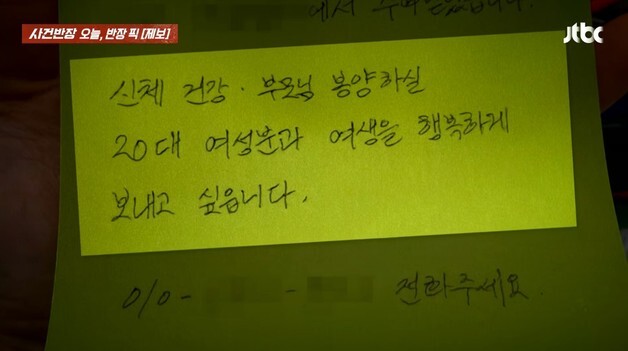 사건반장 오늘, 반장 픽 [제보]
jtbc
에서
신체 건강·부모님 봉양하실
20대 여성분과 여생을 행복하게
보내고 싶읍니다.
010- - 전화주세요.